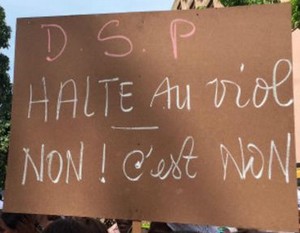 D.S.P
HALTE AU viol
NON ! C'est NON